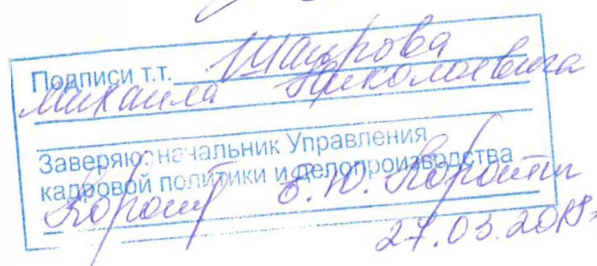 Подписи т.т. Шаирова
Михаила Николаевича
Заверяю: начальник Управления
кадровой политики и делопроизводства
В.Ю.
27.03.2018г